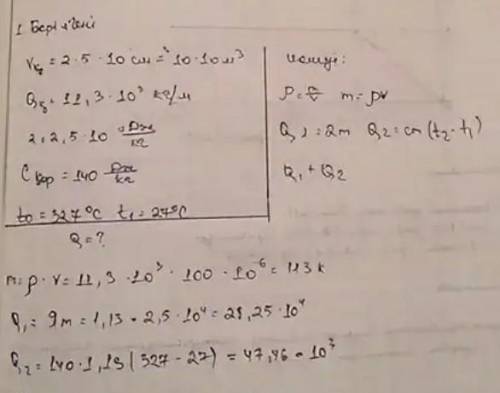 1 Берілгені
Vқ = 2 · 5 · 10 см = 10 · 10 м³
ρқ = 11,3 · 10³ кг/м
λ = 2,5 · 10 Дж/кг
Cқор = 140 Дж/кг
t₀ = 327°C t₁ = 27°C
Q = ?
ρ = m/V m = ρV
Q₁ = λm Q₂ = cm(t₂ - t₁)
Q₁ + Q₂
m = ρ · V = 11,3 · 10³ · 100 · 10⁻⁶ = 1,13 к
Q₁ = 9m = 1,13 · 2,5 · 10⁴ = 28,25 · 10⁴
Q₂ = 140 · 1,13 (327 - 27) = 47,46 · 10³